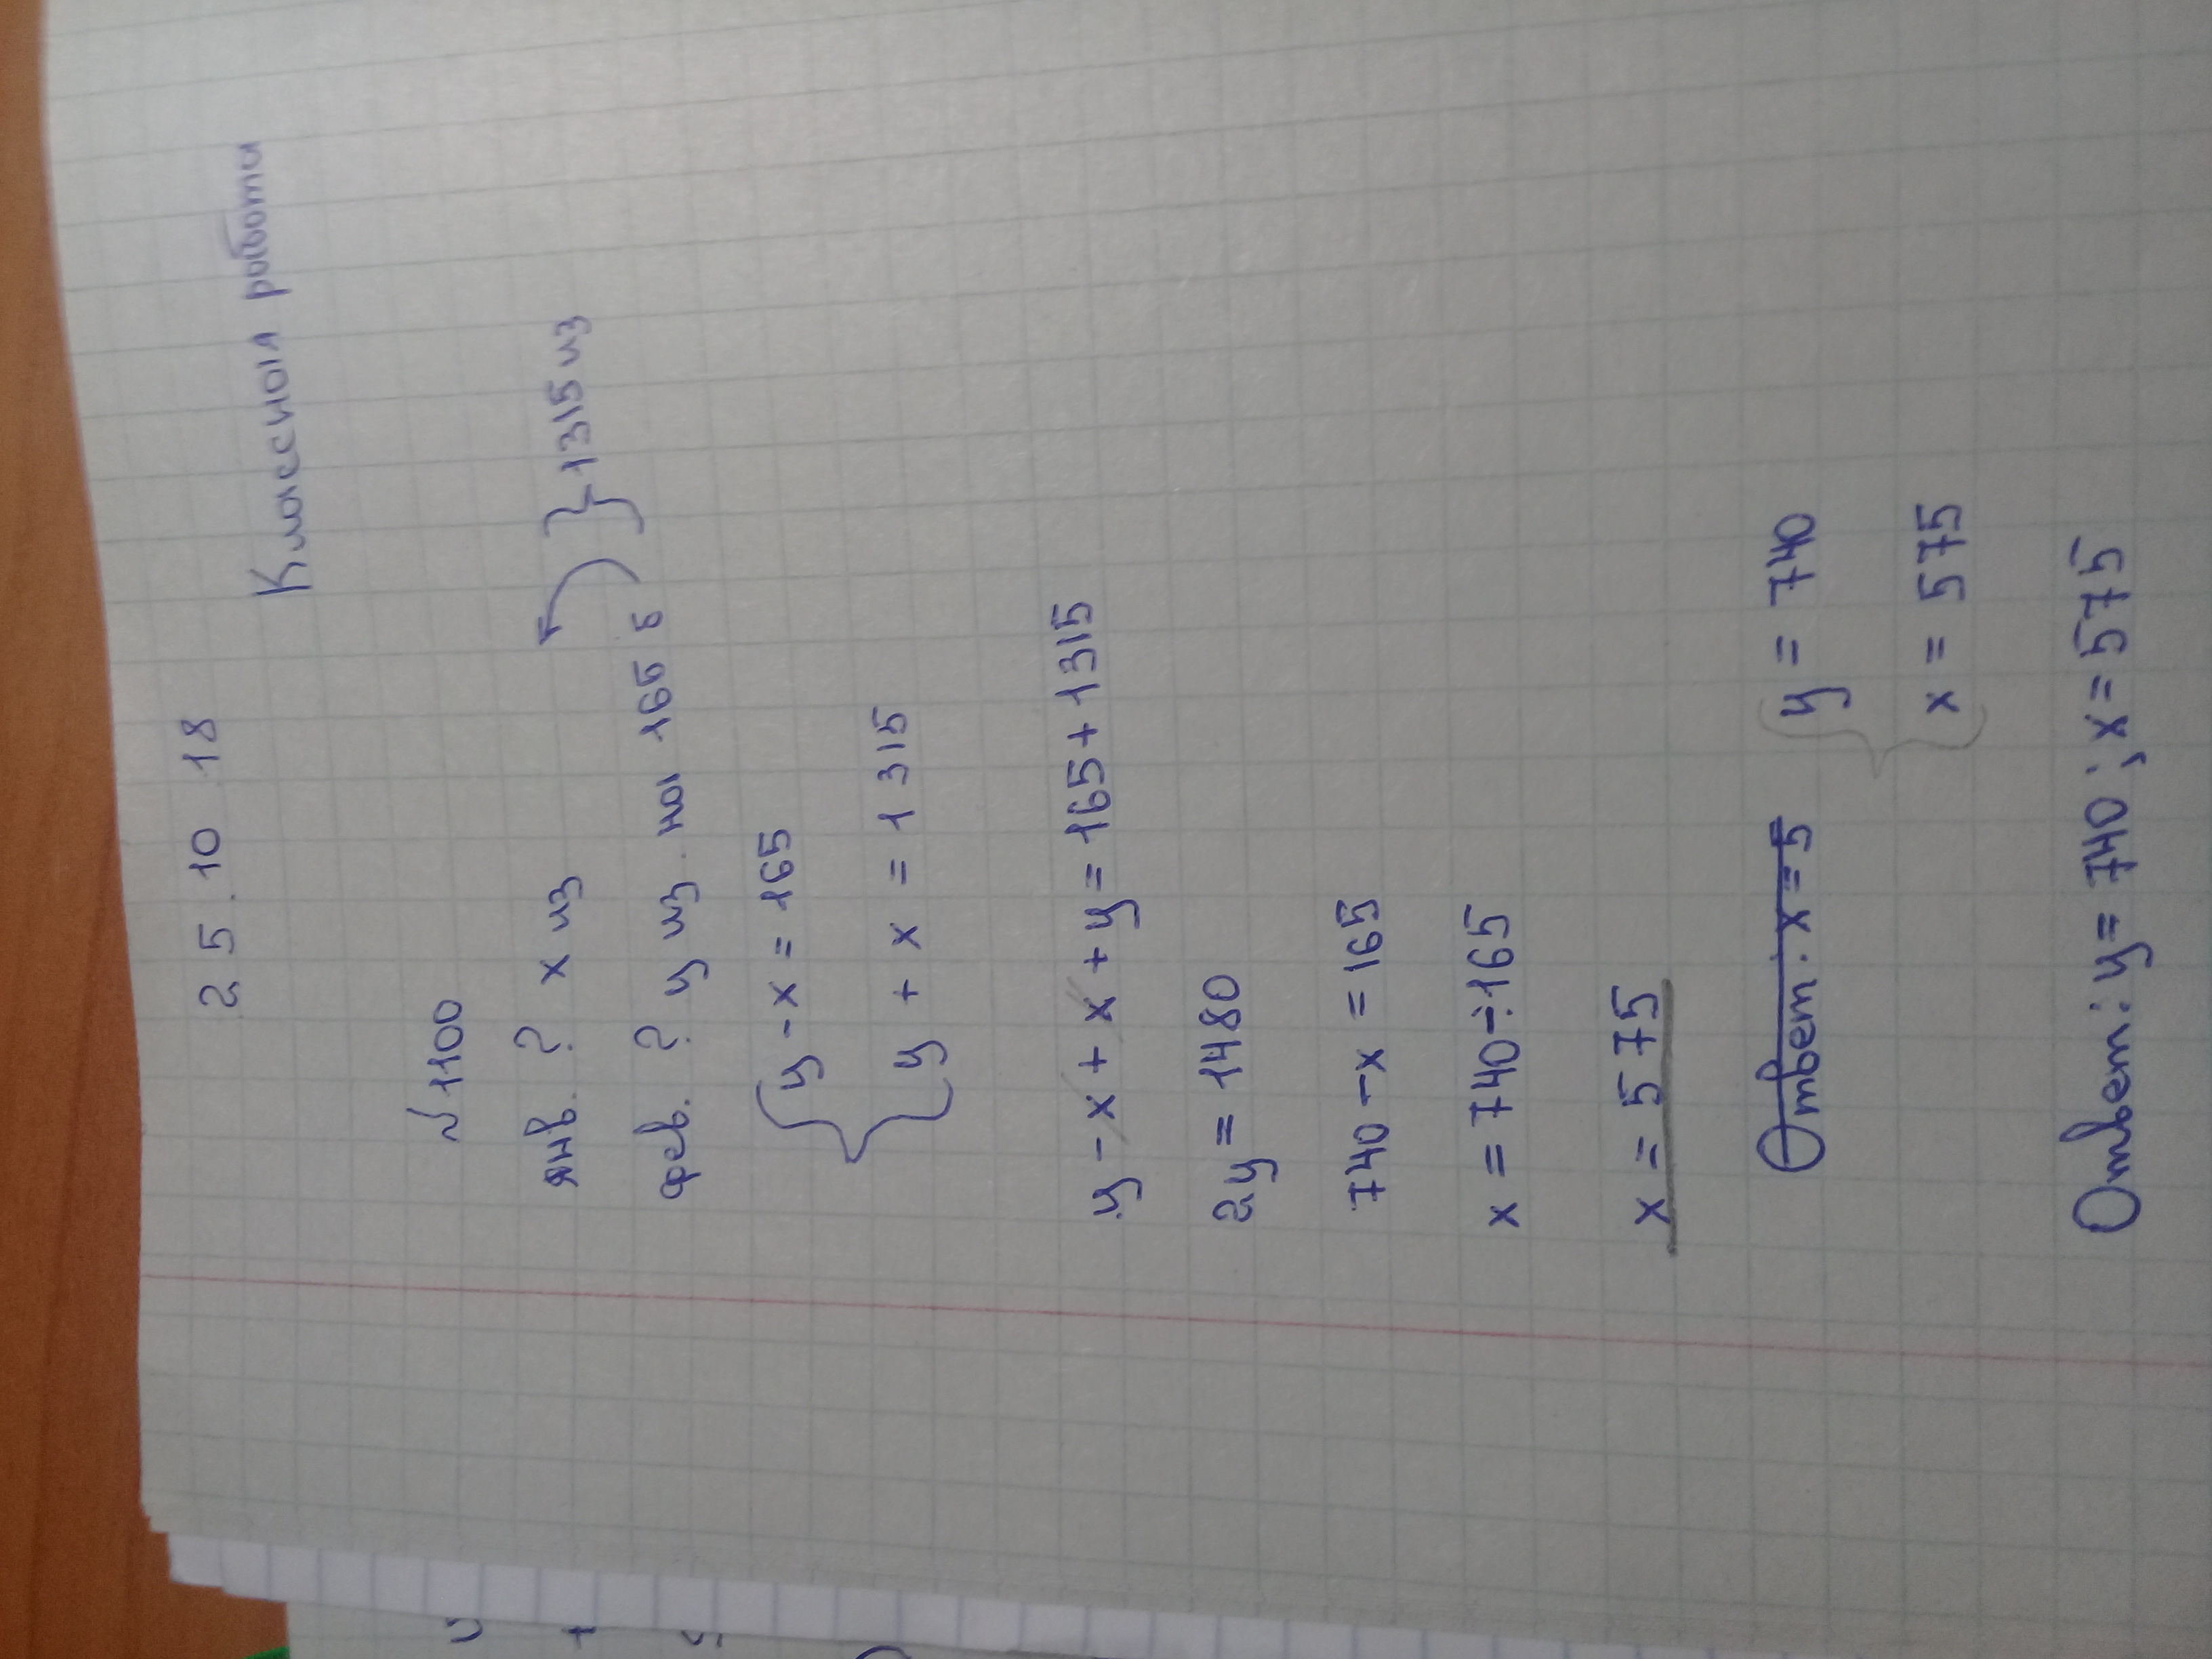 25.10.18
Классная работа
№1100
янв. ? x из
фев. ? y из. на 165 б } 1315 из
{ y - x = 165
y + x = 1315
y - x + x + y = 165 + 1315
2y = 1480
740 - x = 165
x = 740 ÷ 165
x = 575
Ответ: x = 5
{ y = 740
x = 575
Ответ: y = 740 ; x = 575